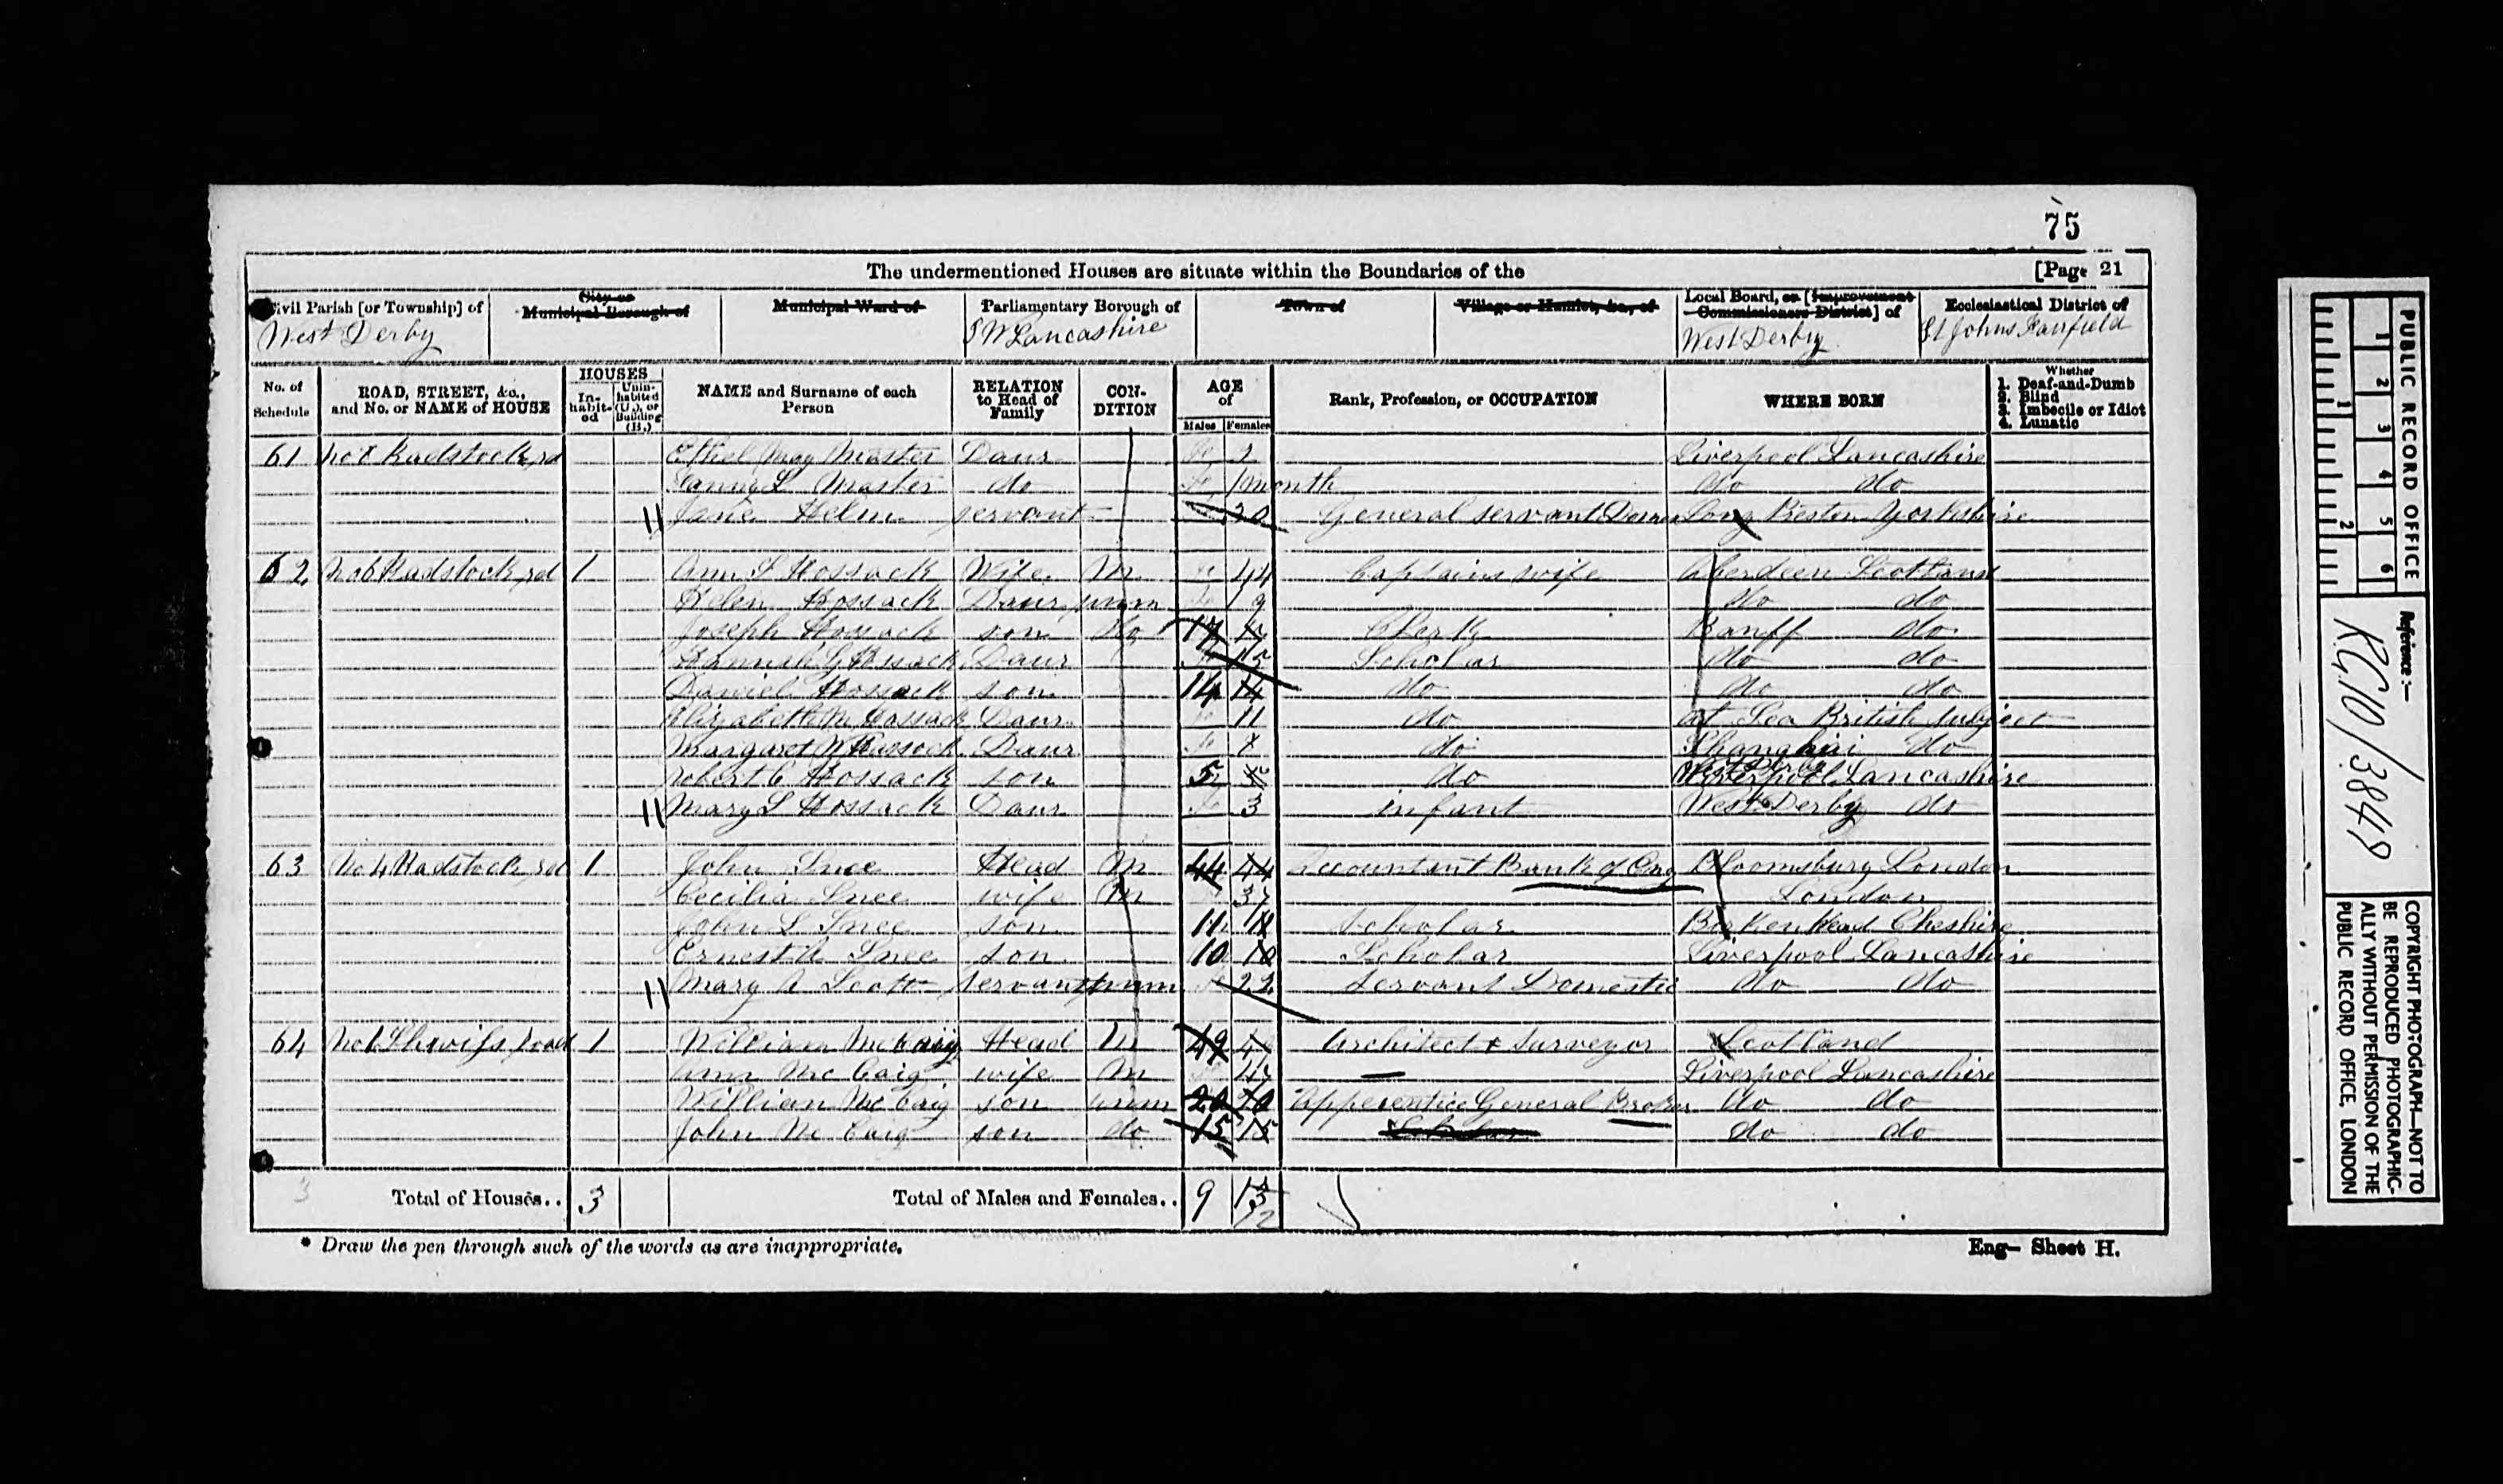 75
The undermentioned Houses are situate within the Boundaries of the [Page 21
Civil Parish [or Township] of
West Derby
City or Municipal Borough of
Municipal Ward of
Parliamentary Borough of
S W Lancashire
Town of
Village or Hamlet, &c., of
Local Board, or [Improvement Commissioners District] of
West Derby
Ecclesiastical District of
St Johns Fairfield
No. of Schedule
ROAD, STREET, &c., and No. or NAME of HOUSE
HOUSES
In-habit-ed
Unin-habited (U.), or Building (B.)
NAME and Surname of each Person
RELATION to Head of Family
CON-DITION
AGE of
Males Females
Rank, Profession, or OCCUPATION
WHERE BORN
Whether
1. Deaf-and-Dumb
2. Blind
3. Imbecile or Idiot
4. Lunatic
61 No 8 Radstock rd Ethel May Master Daur 2 Liverpool Lancashire
Fanny L Master do 10 month do do
Jane Helm servant 20 General servant Long Preston Yorkshire
62 No 6 Radstock rd 1 Ann S Hossack Wife M 44 Captains wife Aberdeen Scotland
Helen Hossack Daur unm 19 do do
Joseph Hossack son do 17 17 Clerk Banff do
Hannah G Hossack Daur 15 Scholar do do
Daniel Hossack son 14 14 do do do
Elizabeth M Hossack Daur 11 do at Sea British Subject
Margaret Hossack Daur do Shanghai do
Robert C Hossack son 5 5 do West Derby Liverpool Lancashire
Mary L Hossack Daur 3 infant West Derby do
63 No 4 Radstock rd 1 John Snee Head M 44 44 Accountant Bank of Eng Bloomsbury London
Cecilia Snee wife M 37 London
John S Snee son 11 11 Scholar Birkenhead Cheshire
Ernest A Snee son 10 10 Scholar Liverpool Lancashire
Mary A Scott servant unm 22 Servant Domestic do do
64 road 1 William McCaig Head M 49 Architect & Surveyor Scotland
Ann Mc Caig wife M Liverpool Lancashire
William Mc Caig son unm 20 20 Apprentice General Broker do do
John Mc Caig son do 15 15 Scholar do do
3 Total of Houses.. 3 Total of Males and Females.. 9 13 12
* Draw the pen through such of the words as are inappropriate.
Eng— Sheet H.
PUBLIC RECORD OFFICE
1 2 3 4 5 6
1 2
Reference:—
RG 10/3849
COPYRIGHT PHOTOGRAPH—NOT TO
BE REPRODUCED PHOTOGRAPHIC-
ALLY WITHOUT PERMISSION OF THE
PUBLIC RECORD OFFICE, LONDON